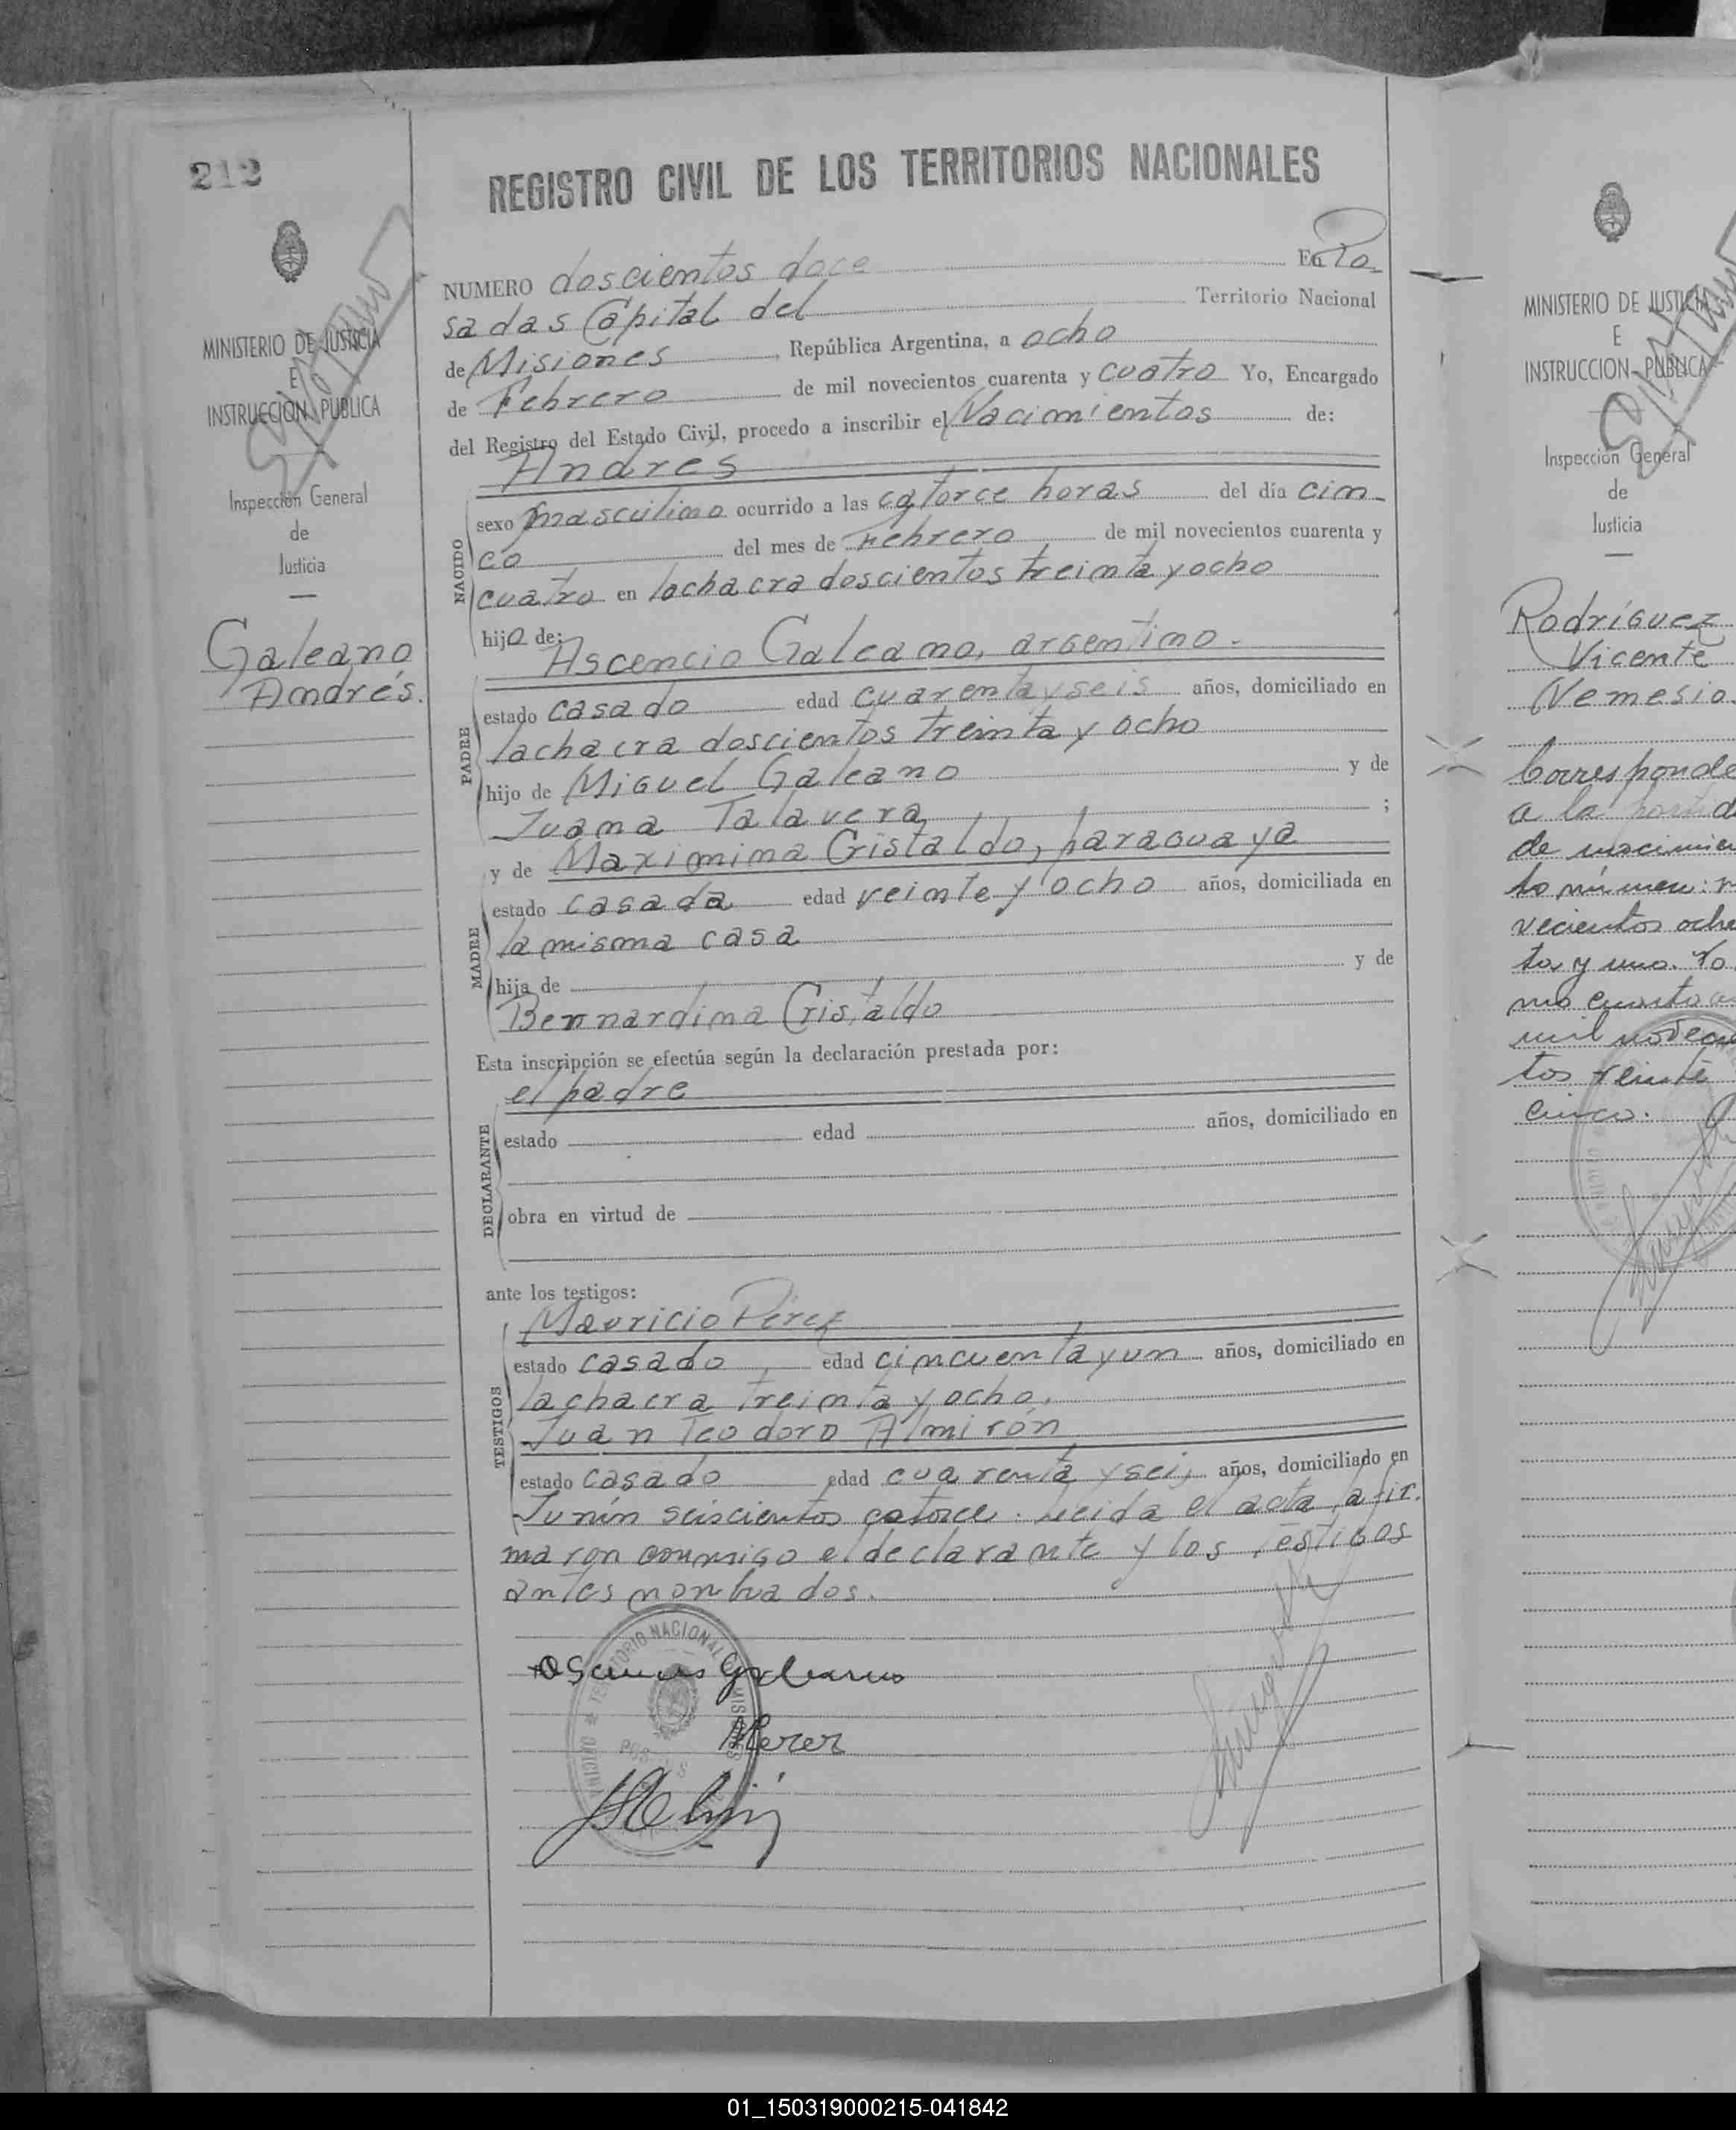 212
REGISTRO CIVIL DE LOS TERRITORIOS NACIONALES
MINISTERIO DE JUSTICIA
E
INSTRUCCION PUBLICA
Inspección General
de
Justicia
Galeano
Andrés.
NUMERO doscientos doce En Po_
sadas Capital del Territorio Nacional
de Misiones, República Argentina, a ocho
de Febrero de mil novecientos cuarenta y cuatro Yo, Encargado
del Registro del Estado Civil, procedo a inscribir el Nacimientos de:
Andres
NACIDO
sexo masculino ocurrido a las catorce horas del día cin_
co del mes de Febrero de mil novecientos cuarenta y
cuatro en lachacra doscientos treinta y ocho
hijo de:
Ascencio Galeano, argentino.
PADRE
estado casado edad cuarenta y seis años, domiciliado en
lachacra doscientos treinta y ocho
hijo de Miguel Galeano y de
Juana Talavera ;
y de Maximina Cristaldo, paraguaya
MADRE
estado casada edad veinte y ocho años, domiciliada en
la misma casa
hija de y de
Bernardina Cristaldo
Esta inscripción se efectúa según la declaración prestada por:
el padre
DECLARANTE
estado edad años, domiciliado en
obra en virtud de
ante los testigos:
Mauricio Pérez
TESTIGOS
estado casado edad cincuenta y un años, domiciliado en
lachacra treinta y ocho.
Juan Teodoro Almirón
estado casado edad cuarenta y seis años, domiciliado en
Junín seiscientos catorce. Leida el acta, a fir.
maron conmigo el declarante y los testigos
antes nombrados.
TERRITORIO NACIONAL MISIONES
Galeano
Perez
MINISTERIO DE JUSTICIA
E
INSTRUCCION PUBLICA
Inspección General
de
Justicia
Rodríguez
Vicente
Nemesio.
Corresponde
a la partid
de nacimien
to número: n
vecientos oche
ta y uno. To
mo cuarto a
mil novecien
tos veinte
cinco.
01_150319000215-041842